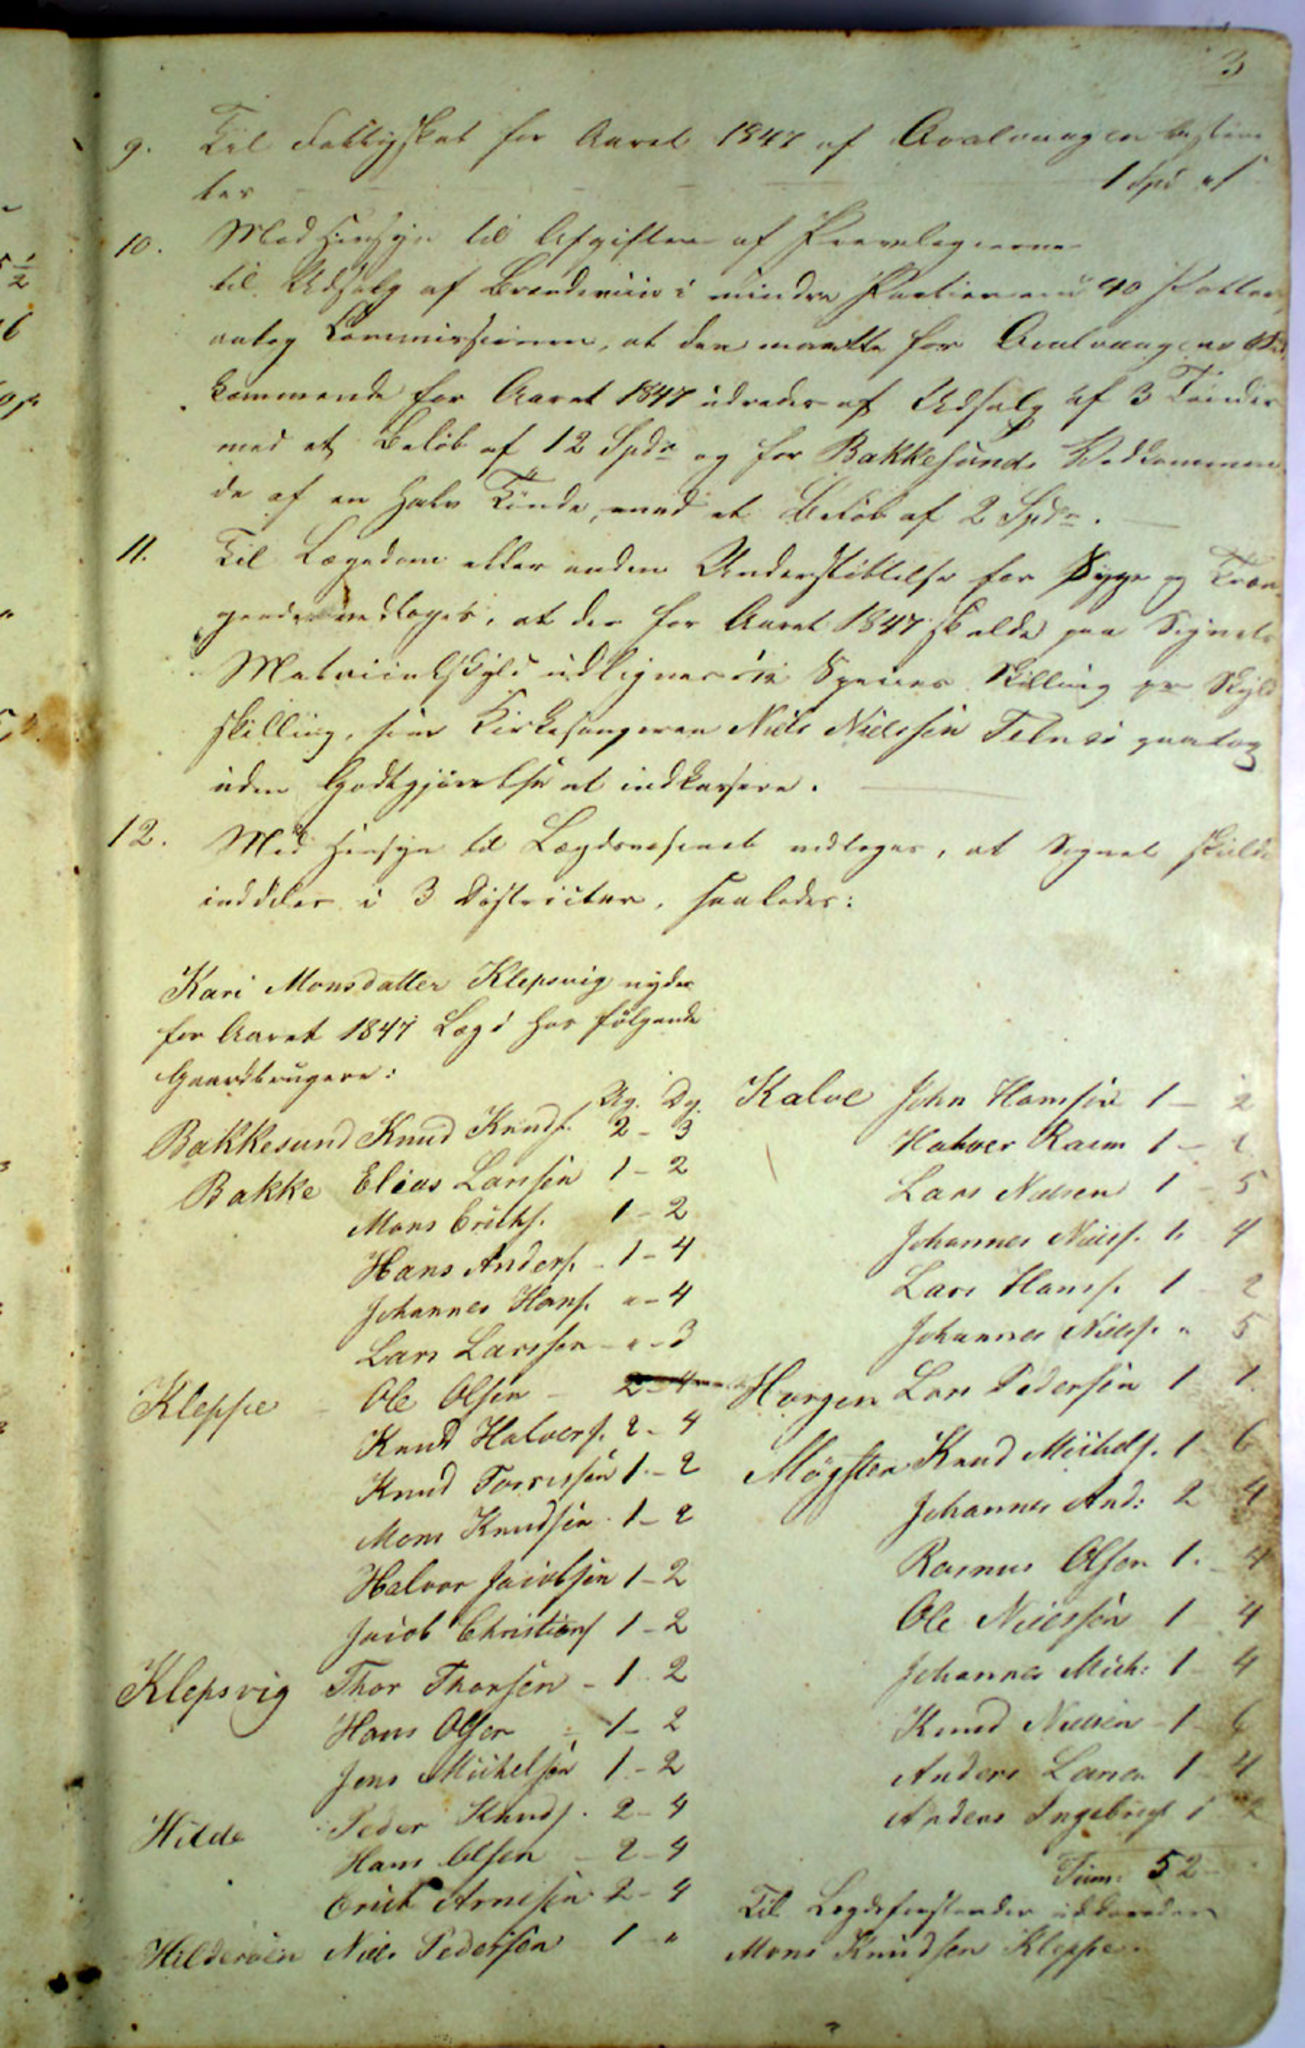 3
9. Til Fattigskat for Aaret 1847 af Qvalvaagen bestem
tes 1 Spd
10. Med Hensyn til Afgiften af
til Udsalg af Brændeviin i mindre Partier end 40 Potter,
antog Commissionen, at den maatte for Qvalvaagens Ved
kommende for Aaret 1847 udredes af Udsalg af 3 Tønder
med et Beløb af 12 Spdr og for Bakkesunds Vedkommen
de af en halv Tønde, med et Beløb af 2 Spdr.
11. Til Lægedom eller anden Understøttelse for Syge og Træn
gende vedtoges, at der for Aaret 1847 skulde paa Sognets
Matriculskyld udlignes Species Skilling pr Skyld
skilling, som Kirkesangeren Niels Nielssen Telnæs paatog
uden Godtgjørelse at indkassere.
12. Med Hensyn til Lægdsvæsenet vedtoges, at Sognet skulde
inddeles i 3 Districter, saaledes:
Kari Monsdatter Klepsvig nyder
for Aaret 1847 Lægd hos følgende
Gaardbrugere:
Ug. Dg.
Bakkesund Knud Knuds. 2 - 3
Bakke Elias Larsen 1 - 2
Mons Ericks. 1 - 2
Hans Anders. - 1 - 4
Johannes Hans. " - 4
Lars Larssen - " - 3
Kleppe - Ole Olsen - 2 - 4
Knud Halvers. 2 - 4
Knud Torrissen 1 - 2
Mons Knudsen 1 - 2
Halvor Jacobsen 1 - 2
Jacob Christians 1 - 2
Klepsvig Thor Thorsen - 1 - 2
Hans Olsen - 1 - 2
Jens Michelsen 1 - 2
Hilde Peder Knuds. 2 - 4
Hans Olsen - 2 - 4
Erick Arnesen 2 - 4
Hilderøen Niels Pedersen 1 - "
Kalve John Hansen 1 - 2
Halvor Rasm 1 -
Lars Nielsen 1 - 5
Johannes Niels. 1 - 4
Lars Hans. 1 - 2
Johannes Niels. " 5
Horgen Lars Pedersen 1 1
Møgster Knud Michels. 1 - 6
Johannes And: 2 4
Rasmus Olsen 1 - 4
Ole Nielssen 1 - 4
Johannes Mich: 1 - 4
Knud Nielsen - 1 - 6
Anders Larsen 1 - 4
Anders Ingebrigt 1 2
Sum: 52 -
Til Lægdsforstander
Mons Knudsen Kleppe.